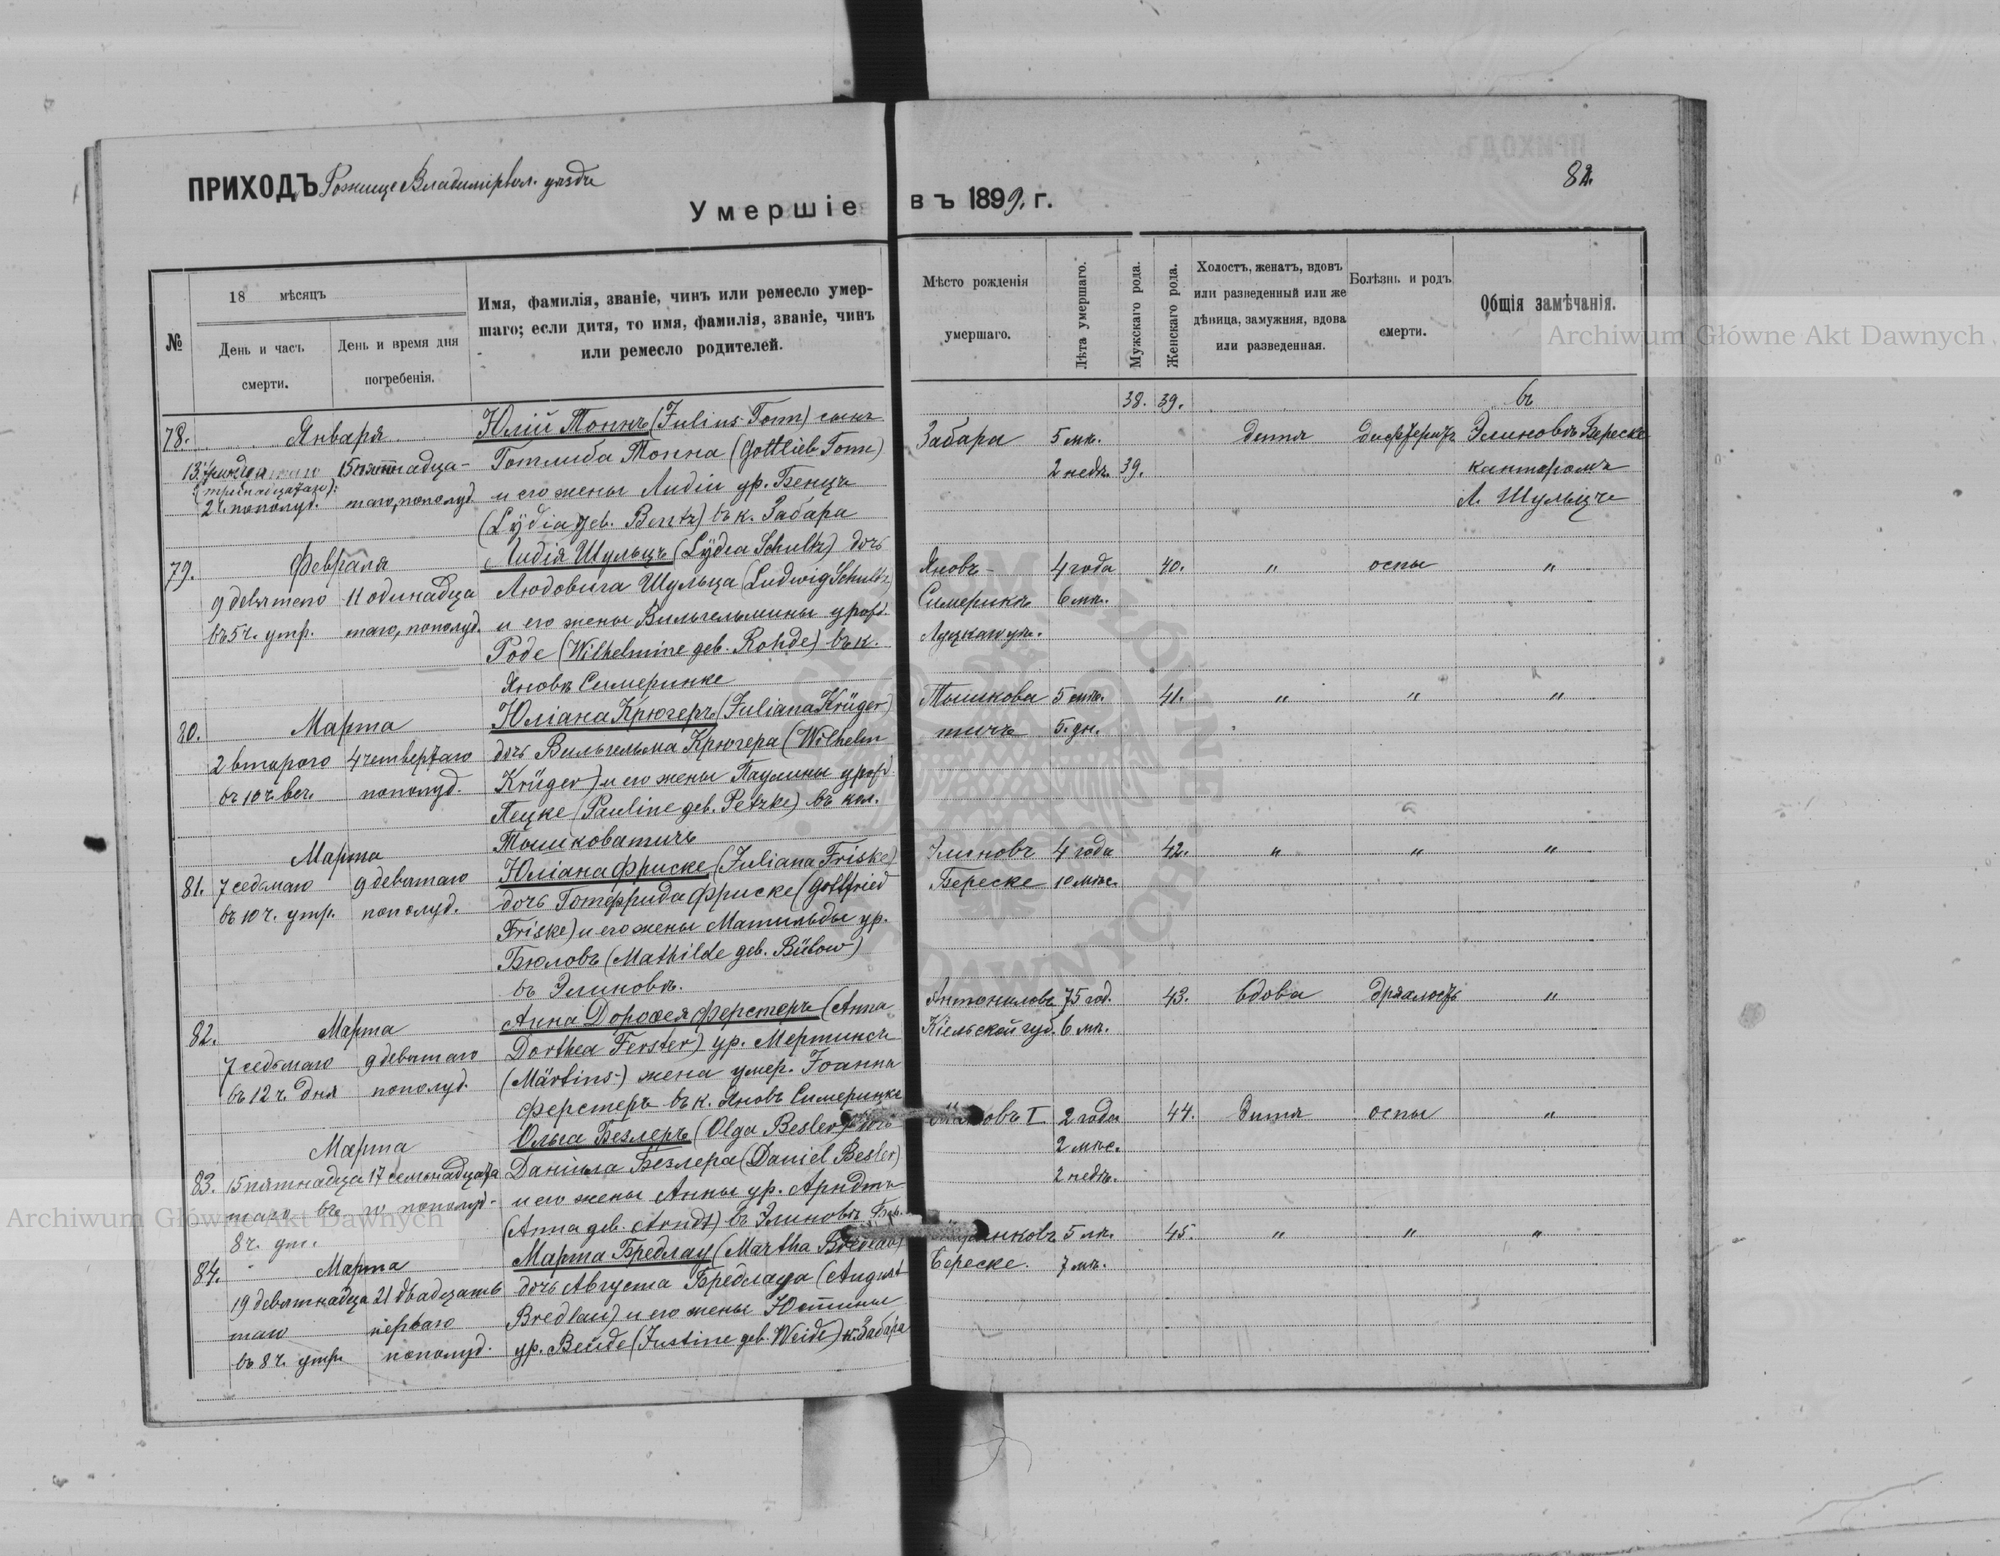 ПРИХОДЪ Рожище Владимірвол. уѣзда
82.
Умершіе въ 1899. г.
№
18 мѣсяцъ
День и часъ смерти.
День и время дня погребенія.
Имя, фамилія, званіе, чинъ или ремесло умер-
шаго; если дитя, то имя, фамилія, званіе, чинъ
или ремесло родителей.
Мѣсто рожденія
умершаго.
Лѣта умершаго.
Мужскаго рода.
Женскаго рода.
Холостъ, женатъ, вдовъ
или разведенный или же
дѣвица, замужняя, вдова
или разведенная.
Болѣзнь и родъ
смерти.
Общія замѣчанія.
Archiwum Główne Akt Dawnych
38. 39.
78. Января Юлій Тоннъ (Julius Tonn) сынъ Забара 5 мѣ. дитя дифтеритъ въ Элиновѣ Береске
13 15 пятнадца- Готлиба Тонна (Gottlieb Tonn) 2 недѣ. 39. канторомъ
(тринадцатаго):
2 ч. пополуд. таго, пополуд. и его жены Лидіи ур. Бенцъ А. Шульцъ
(Lÿdia geb. Bentz) въ к. Забара
79. Февраля Лидія Шульцъ (Lÿdia Schultz) дочь Яновъ- 4 года 40. " оспы "
9 девятаго 11 одинадца Людовига Шульца (Ludwig Schultz) Симерикъ 6 мѣ.
въ 5 ч. утр. таго, пополуд. и его жены Вильгельмины урожд. Луцкаго уѣ.
Роде (Wilhelmine geb. Rohde) въ к.
Яновъ Симеринке
80. Марта Юліана Крюгеръ (Juliana Krüger) Тошкова 5 мѣ. 41. " " "
2 второго 4 четвертаго дочь Вильгельма Крюгера (Wilhelm тичъ 5 дн.
въ 10 ч. веч. пополуд. Krüger) и его жены Паулины урожд.
Пецке (Pauline geb. Petzke) въ кол.
Тошковатичъ
Марта Юліана Фриске (Juliana Friske) Элиновъ 4 года 42. " " "
81. 7 седьмаго 9 девятаго дочь Готфрида Фриске (Gottfried Береске 10 мѣс.
въ 10 ч. утр. пополуд. Friske) и его жены Матильды ур.
Бюловъ (Mathilde geb. Bülow)
въ Элиновѣ.
82. Марта Анна Доротея Ферстеръ (Anna Антониловъ 75 год. 43. вдова дряхлость "
7 седьмаго 9 девятаго Dorthea Ferster) ур. Мертинсъ губ. 6 мѣ.
въ 12 ч. дня пополуд. (Märtins) жена умер. Іоанна
Ферстеръ въ к. Яновъ Симеринке
Марта Ольга Безлеръ (Olga Besler) дочь I 2 года 44. дитя оспы "
83. 15 пятнадца 17 семнадцата Даніила Безлера (Daniel Besler) 2 мѣс.
таго въ го пополуд. и его жены Анны ур. Арндтъ 2 недѣ.
8 ч. ут. (Anna geb. Arndt) въ Элиновѣ Бер.
84. Марта Марта Бредлау (Martha Bredlau) 5 лѣ. 45. " " "
19 девятнадца 21 двадцать дочь Августа Бредлауа (August Береске. 7 мѣ.
таго перваго Bredlau) и его жены Юстины
въ 8 ч. утр. пополуд. ур. Вейде (Justine geb. Weide) к. Забара
Archiwum Główne Akt Dawnych